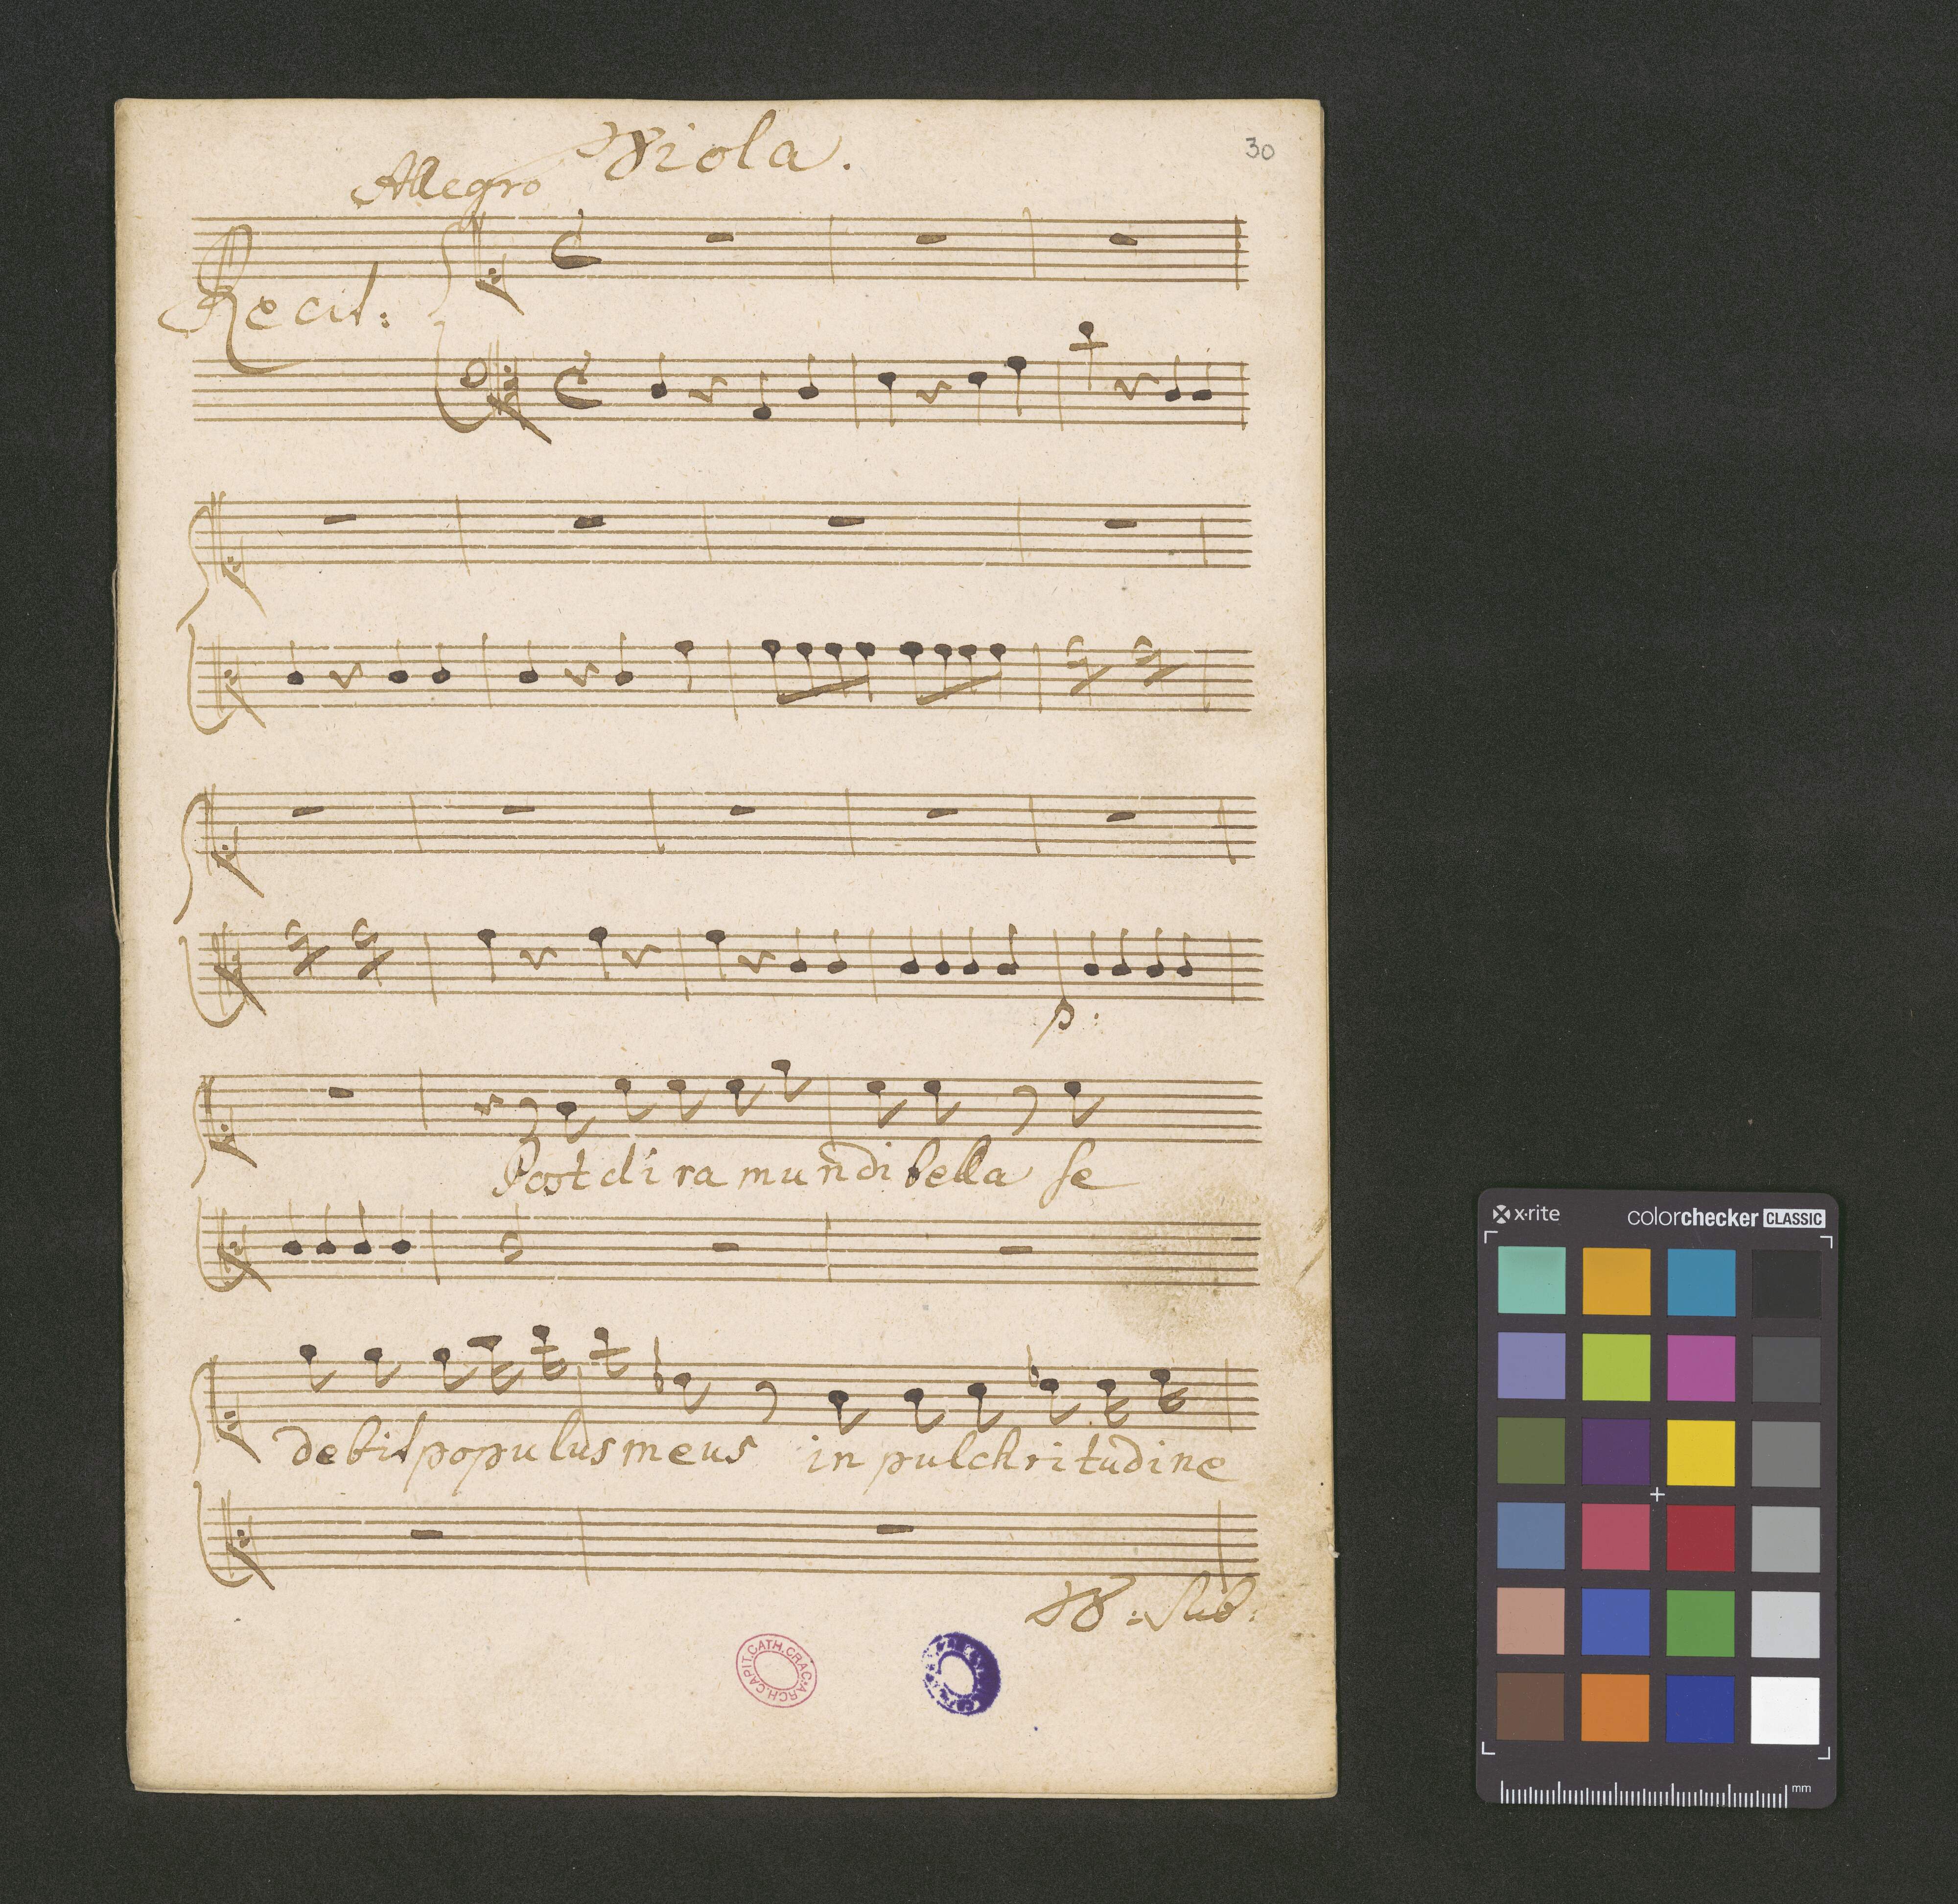 Viola.
30
Allegro
Recit:
p:
Post dira mundi bella se
debit populus meus in pulchritudine
V: Sub:
ARCH.CAPIT.CATH.CRAC.
x·rite colorchecker CLASSIC
mm